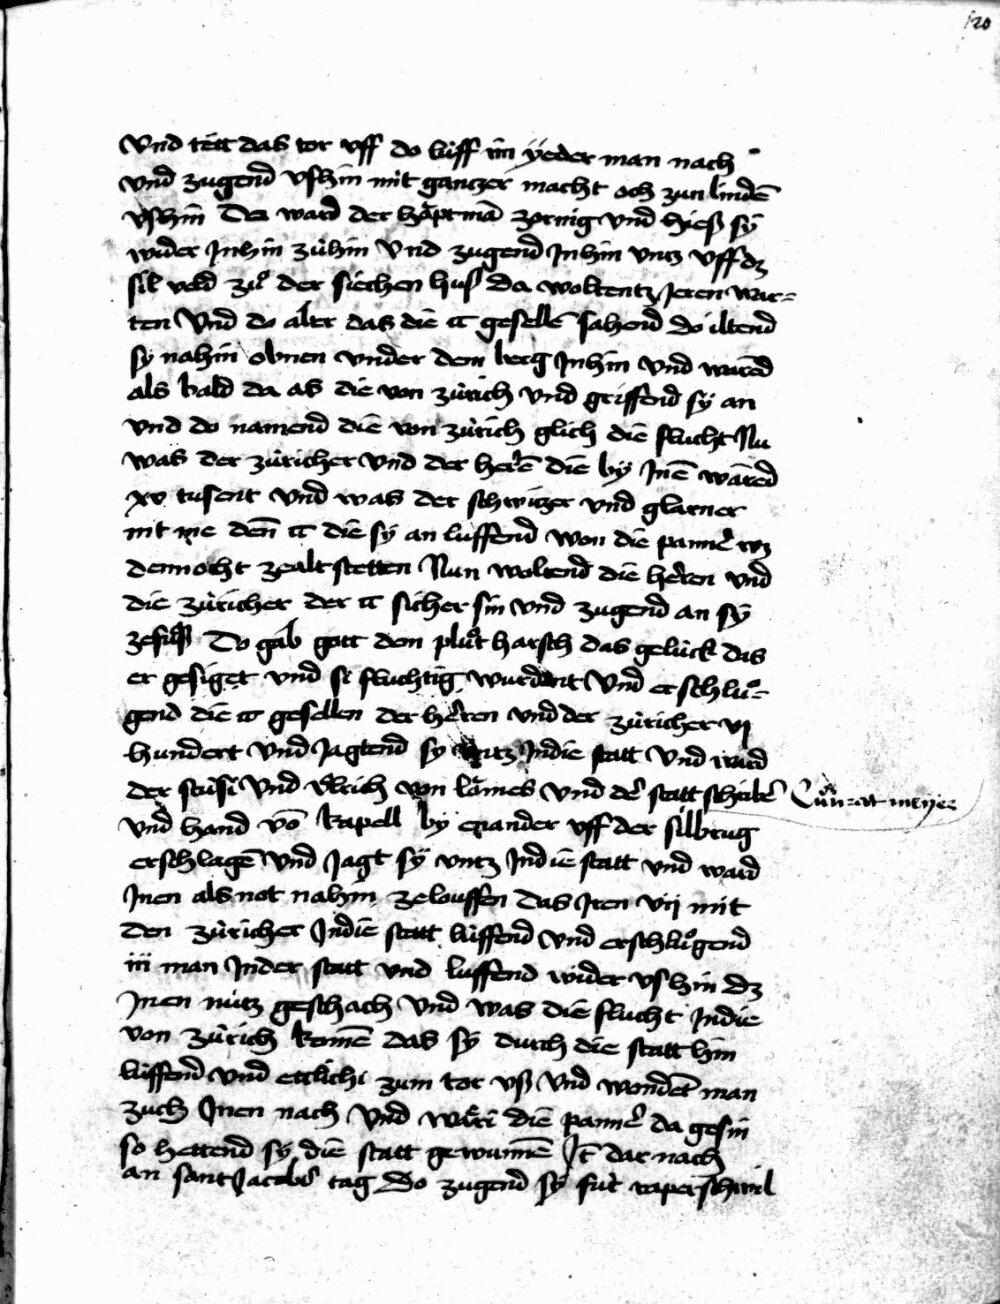 120
Vnd tett das tor vff do lüff im yeder man nach
vnd zugend vshin mit gantzer macht och zun lindē
vshin Da ward der hᷣptmā zornig vnd hieß sÿ
wider Jnhin zühin Vnd zugend Jnhin vntz vff dz
sil veld zuͦ der siechen huß da woltentz Jeren war=
ten Vnd do aber das die cc gesellē sahend do iltend
sy nahin obnen vnder dem berg Jnhin vnd warēd
als bald da as die von zürich vnd griffend sÿ an
vnd do namend die von zürich glich die flucht Nu
was der züricher vnd der herē die bÿ Jnē warēd
xv tusent vnd was der schwitzer vnd glarner
nit me den̄ cc die sÿ an luffend won die panner wz
dennocht zealtstetten Nun woltend die heren vnd
die züricher der cc sicher sin vnd zugend an sÿ
zefuß Do gab gott dem pluͦt harsch das gelück das
er gesiget vnd si fluchtig wurdent Vnd erschluͦ=
gend die cc gesellen der heren vnd der züricher vj
hundert vnd Jagtend sy vntz Jndie statt Vnd ward
der stüsi Vnd Vlrich von lämes vnd der statt schriber Cuͦnrat meyer
vnd hand vō kapell by einander vff der silbrug
erschlagē Vnd Jagt sÿ vntz Jndie statt vnd ward
Jnen als not nahin zelouffen das Jren vij mit
den züricher Jndie statt lüffend vnd erschluͦgend
iii man Jnder statt vnd luffend wider vshin dz
Jnen nütz geschach vnd was die flucht Jndie
von zürich komē das sÿ durch die statt hin
lüffend vnd ettlichi zum tor vß Vnd wondet man
zuch Jnen nach Vnd wäri die panner da gesin
so hettend sy die statt gewunnē Jt̄ dar nach
an sant Jacobs tag Do zugend sÿ für raperschwil